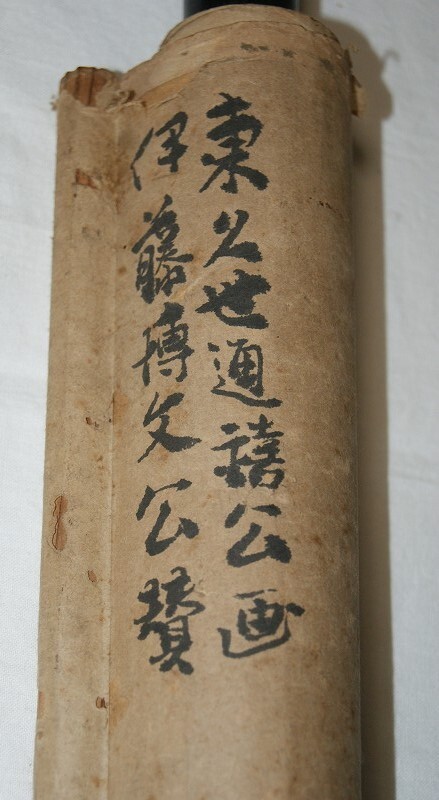 東久世通禧公画
伊藤博文公賛